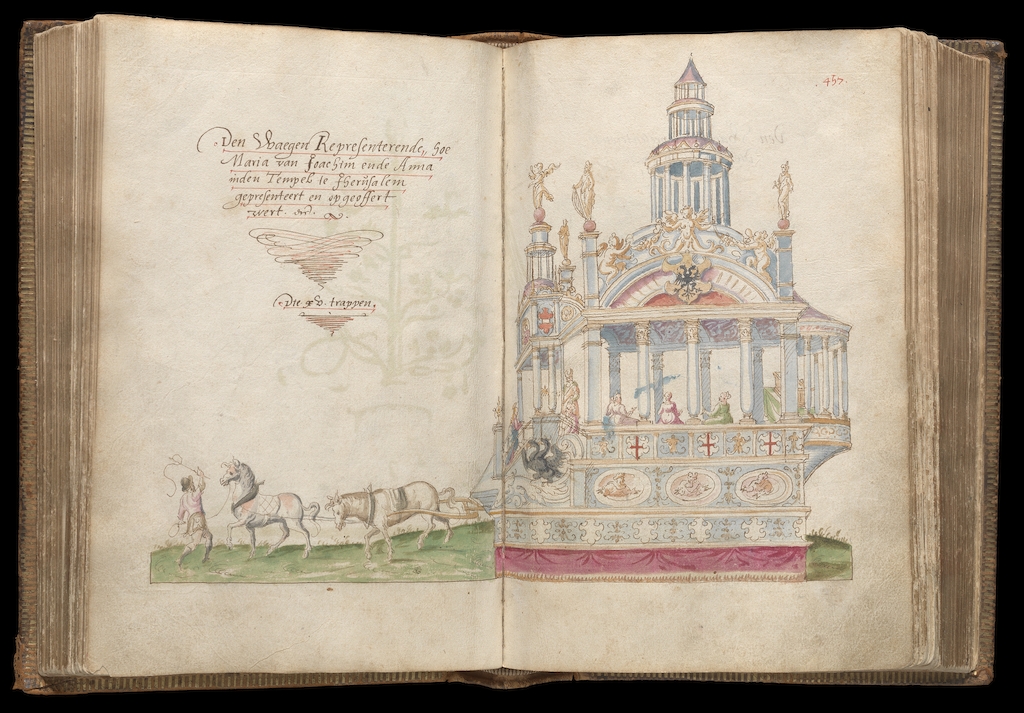 Den Waegen Representerende, hoe
Maria van Joachim ende Anna
inden Tempel te Jherusalem
gepresenteert en opgeoffert
wert.
Die xv. trappen.
.457.